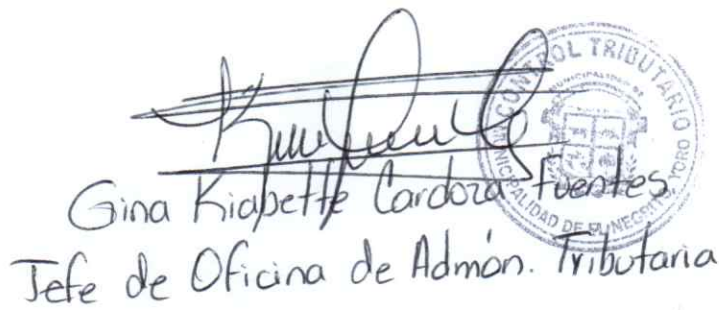 CONTROL TRIBUTARIO
MUNICIPALIDAD DE
MUNICIPALIDAD DE EL NEGRITO, YORO
Gina Kiabette Cardoza Fuentes
Jefe de Oficina de Admón. Tributaria